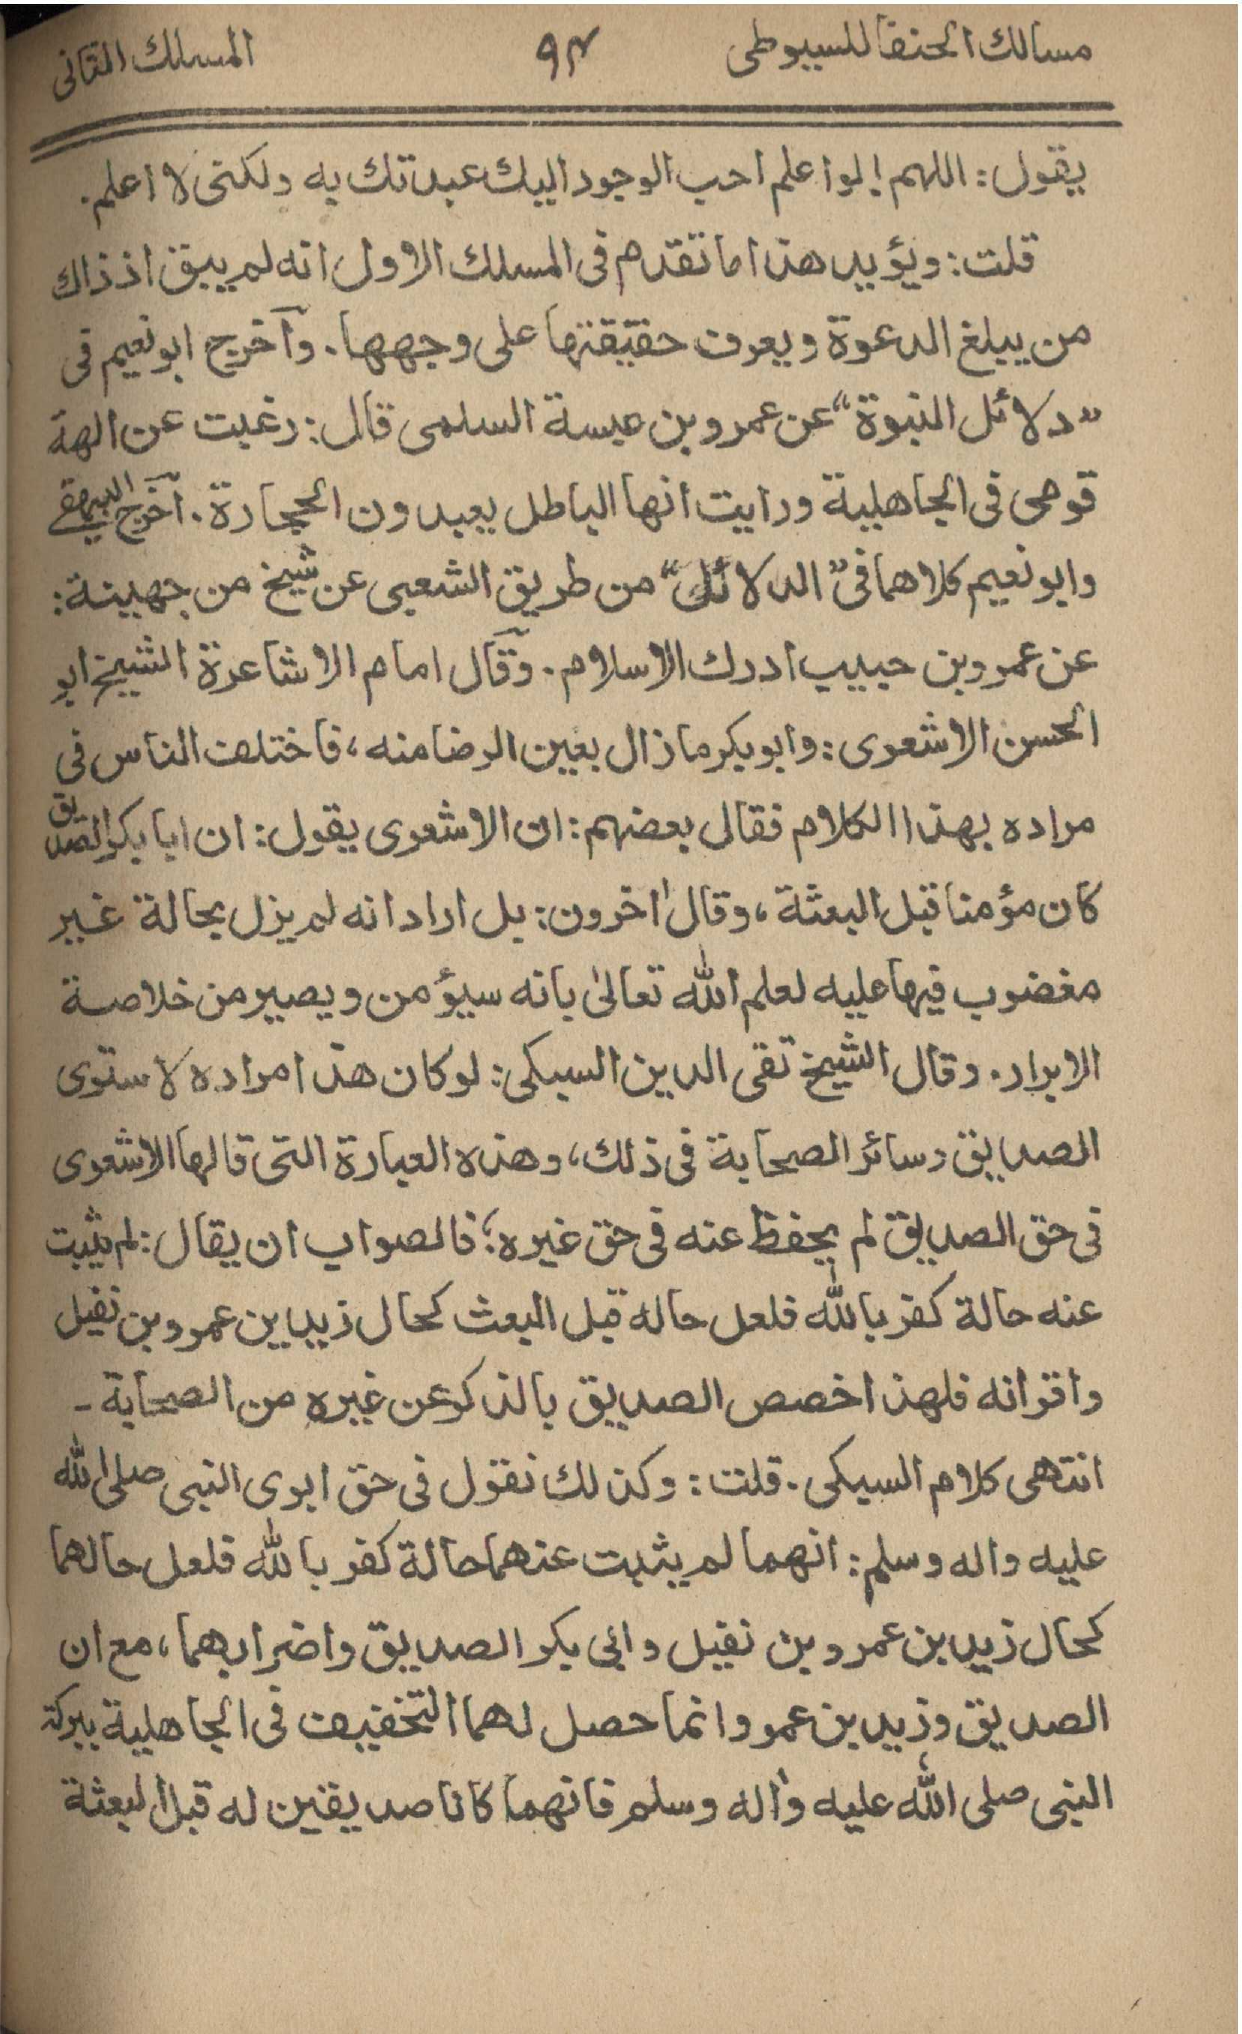 مسالك الحنفا للسيوطى ٩٣ المسلك الثانى
يقول: اللهم لو اعلم احب الوجوه اليك عبدتك به ولكنى لا اعلم.
قلت: ويؤيد هذا ما تقدم فى المسلك الاول انه لم يبق اذ ذاك
من يبلغ الدعوة ويعرف حقيقتها على وجهها. وآخرج ابو نعيم فى
”دلائل النبوة“ عن عمرو بن عبسة السلمى قال: رغبت عن الهة
قومى فى الجاهلية ورايت انها الباطل يعبدون الحجارة. آخرج البيهقى
وابو نعيم كلاهما فى ”الدلائل“ من طريق الشعبى عن شيخ من جهينة:
عن عمرو بن حبيب ادرك الاسلام. وقال امام الاشاعرة الشيخ ابو
الحسن الاشعرى: وابو بكر ما زال بعين الرضا منه، فاختلف الناس فى
مراده بهذا الكلام فقال بعضهم: ان الاشعرى يقول: ان ابا بكر الصديق
كان مؤمنا قبل البعثة، وقال اٰخرون: بل اراد انه لم يزل بحالة غير
مغضوب فيها عليه لعلم الله تعالىٰ بانه سيؤمن ويصير من خلاصة
الابرار. وقال الشيخ تقى الدين السبكى: لو كان هذا مراده لاستوى
الصديق وسائر الصحابة فى ذلك، وهذه العبارة التى قالها الاشعرى
فى حق الصديق لم يحفظ عنه فى حق غيره؛ فالصواب ان يقال: لم يثبت
عنه حالة كفر بالله فلعل حاله قبل البعث كحال زيد بن عمرو بن نفيل
واقرانه فلهذا خصص الصديق بالذكر عن غيره من الصحابة -
انتهى كلام السبكى. قلت: وكذلك نقول فى حق ابوى النبى صلى الله
عليه واله وسلم: انهما لم يثبت عنهما حالة كفر بالله فلعل حالهما
كحال زيد بن عمرو بن نفيل وابى بكر الصديق واضرابهما، مع ان
الصديق وزيد بن عمرو انما حصل لهما التخفيف فى الجاهلية ببركة
النبى صلى الله عليه واٰله وسلم فانهما كانا صديقين له قبل البعثة